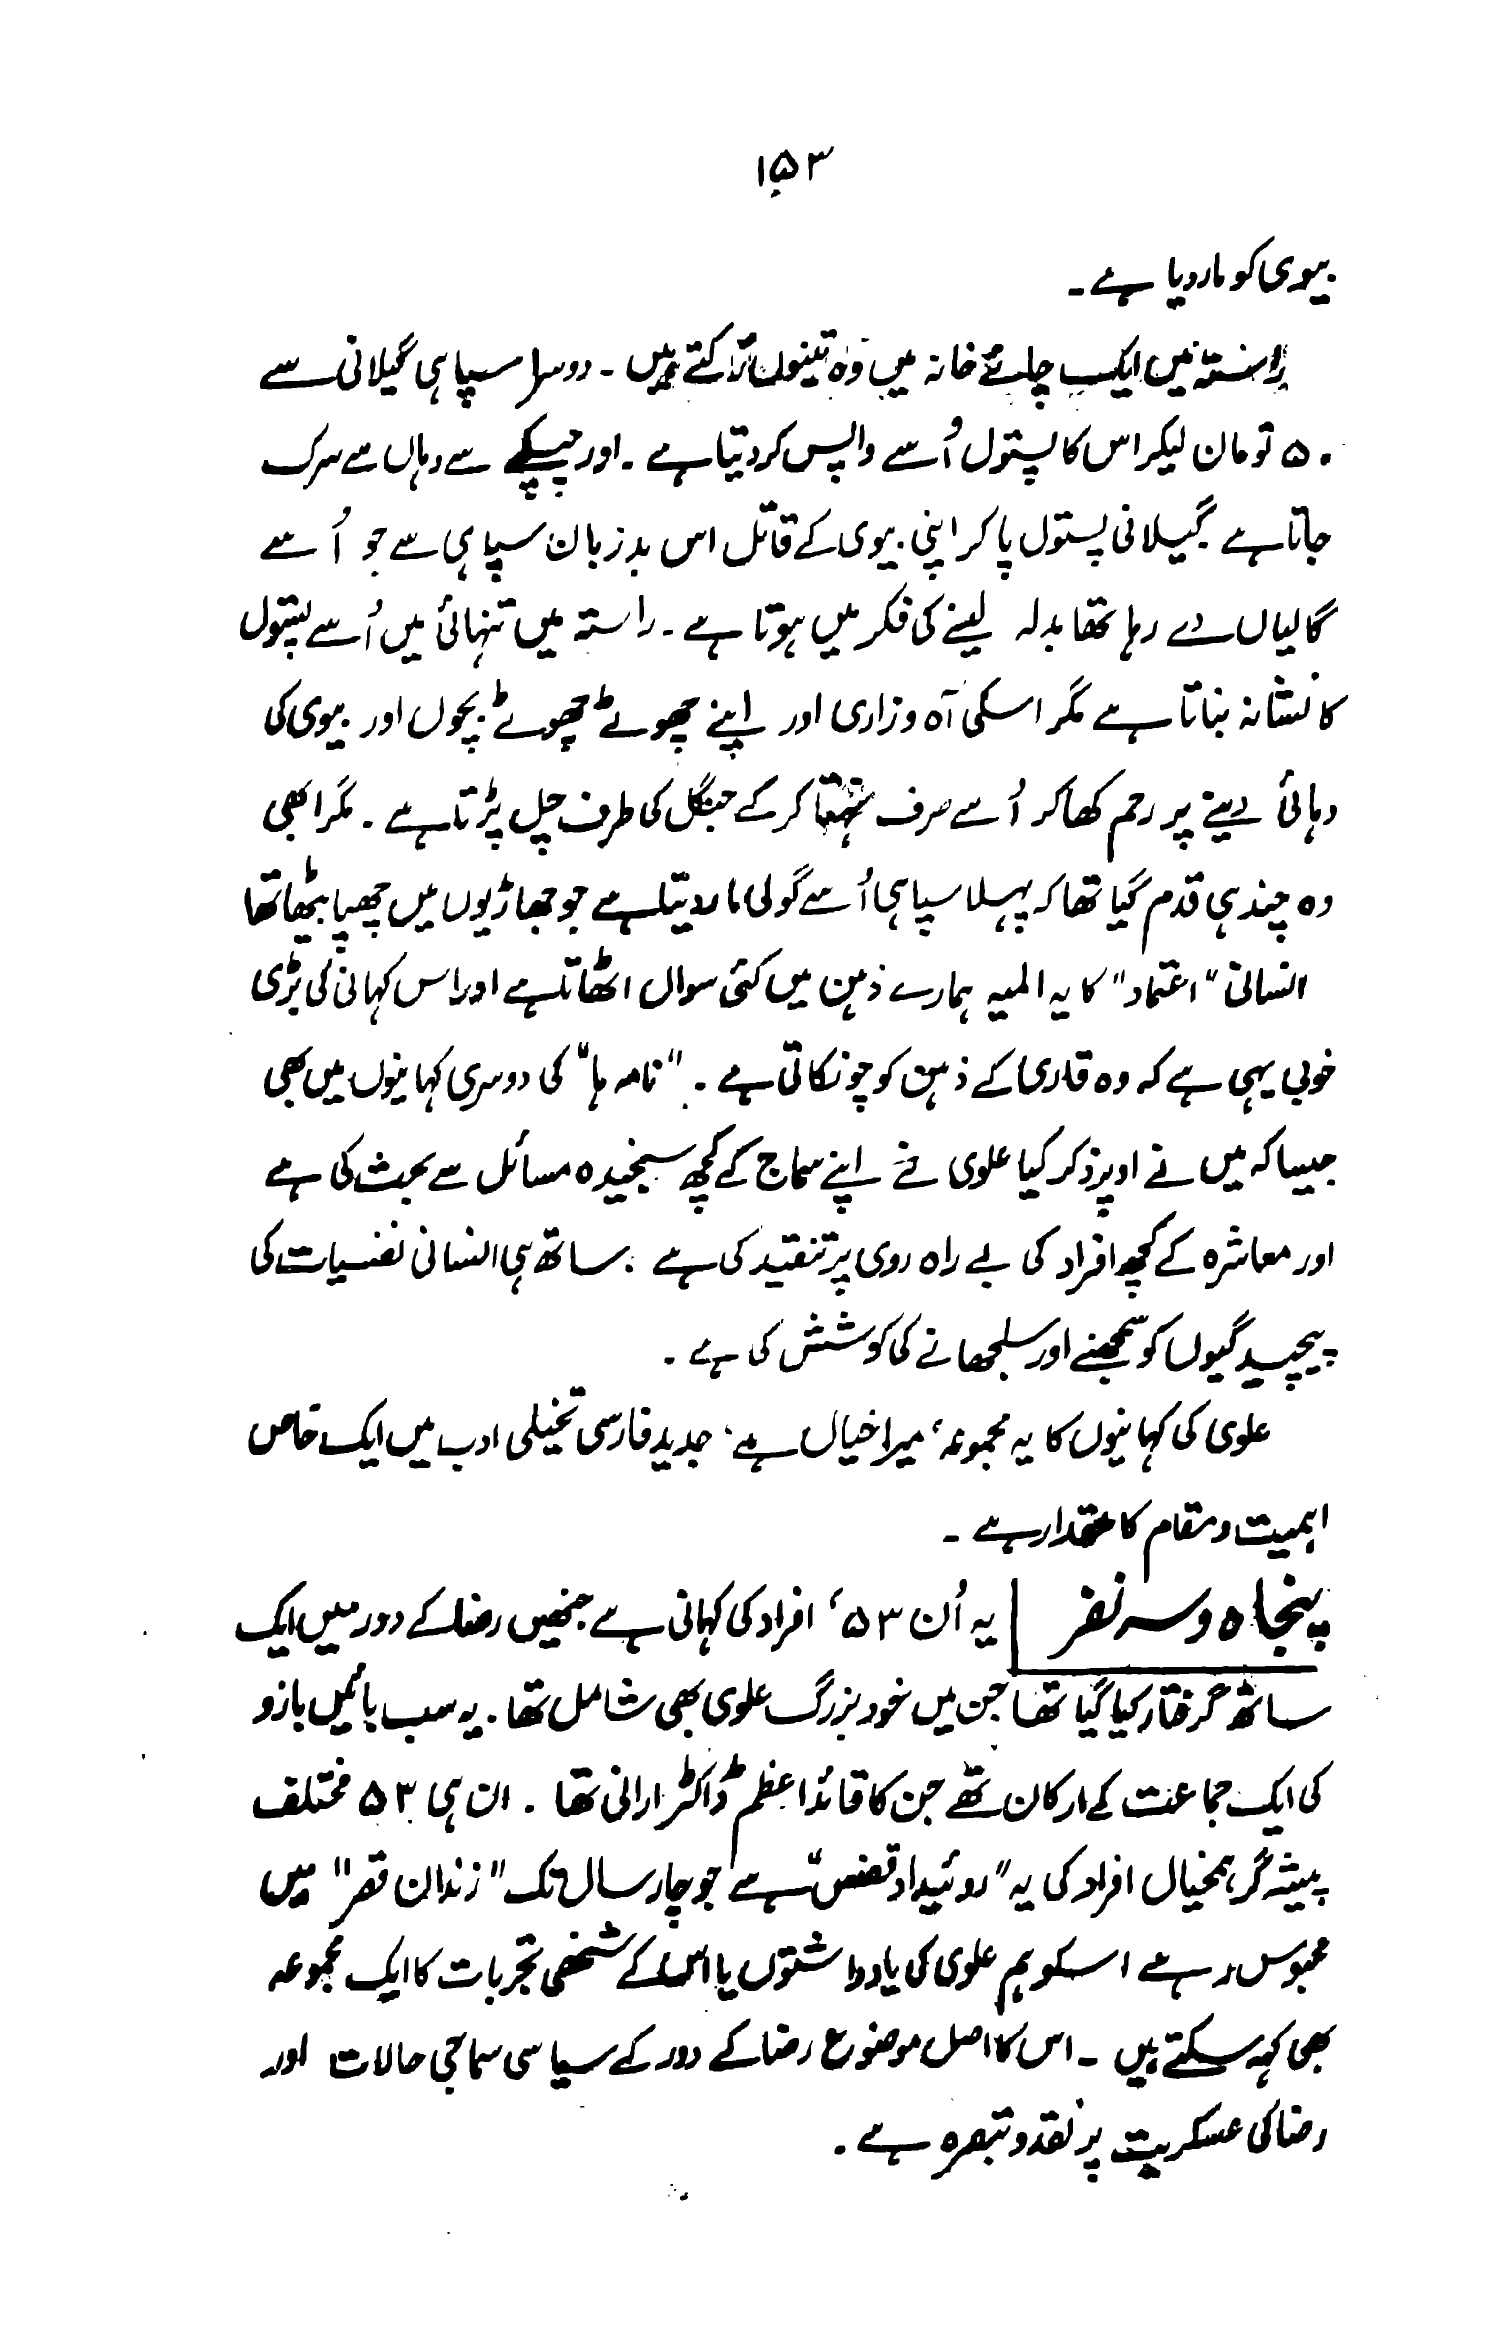 ۱۵۳
بیوی کو مار دیا ہے۔
راستہ میں ایک چائے خانہ میں وہ تینوں رُکتے ہیں۔ دوسرا سپاہی گیلانی سے
۵۰ تومان لیکر اس کا پستول اُسے واپس کر دیتا ہے۔ اور چپکے سے وہاں سے سرک
جاتا ہے گیلانی پستول پا کر اپنی بیوی کے قاتل اس بدزبان سپاہی سے جو اُسے
گالیاں دے رہا تھا بدلہ لینے کی فکر میں ہوتا ہے۔ راستہ میں تنہائی میں اُسے پستول
کا نشانہ بناتا ہے مگر اسکی آہ و زاری اور اپنے چھوٹے چھوٹے بچوں اور بیوی کی
دہائی دینے پر رحم کھا کر اُسے صرف نہتا کر کے جنگل کی طرف چل پڑتا ہے۔ مگر ابھی
وہ چند ہی قدم گیا تھا کہ پہلا سپاہی اُسے گولی مار دیتا ہے جو جھاڑیوں میں چھپا بیٹھا تھا
انسانی "اعتماد" کا یہ المیہ ہمارے ذہن میں کئی سوال اٹھاتا ہے اور اس کہانی کی بڑی
خوبی یہی ہے کہ وہ قاری کے ذہن کو چونکاتی ہے۔ "نامہ ہا" کی دوسری کہانیوں میں بھی
جیسا کہ میں نے اوپر ذکر کیا علوی نے اپنے سماج کے کچھ سنجیدہ مسائل سے بحث کی ہے
اور معاشرہ کے کچھ افراد کی بے راہ روی پر تنقید کی ہے۔ ساتھ ہی انسانی نفسیات کی
پیچیدگیوں کو سمجھنے اور سلجھانے کی کوشش کی ہے۔
علوی کی کہانیوں کا یہ مجموعہ، میرا خیال ہے، جدید فارسی تخیلی ادب میں ایک خاص
اہمیت و مقام کا حقدار ہے۔
پنجاہ و سہ نفر یہ اُن ۵۳، افراد کی کہانی ہے جنھیں رضا کے دور میں ایک
ساتھ گرفتار کیا گیا تھا جن میں خود بزرگ علوی بھی شامل تھا۔ یہ سب بائیں بازو
کی ایک جماعت کے ارکان تھے جن کا قائد اعظم ڈاکٹر ارانی تھا۔ ان ہی ۵۳ مختلف
پیشہ گر، ہمخیال افراد کی یہ "روئیداد قفس" ہے جو چار سال تک "زندان قصر" میں
محبوس رہے اسکو ہم علوی کی یادداشتوں یا اس کے شخصی تجربات کا ایک مجموعہ
بھی کہہ سکتے ہیں۔ اس کا اصل موضوع رضا کے دور کے سیاسی سماجی حالات اور
رضا کی عسکریت پر نقد و تبصرہ ہے۔